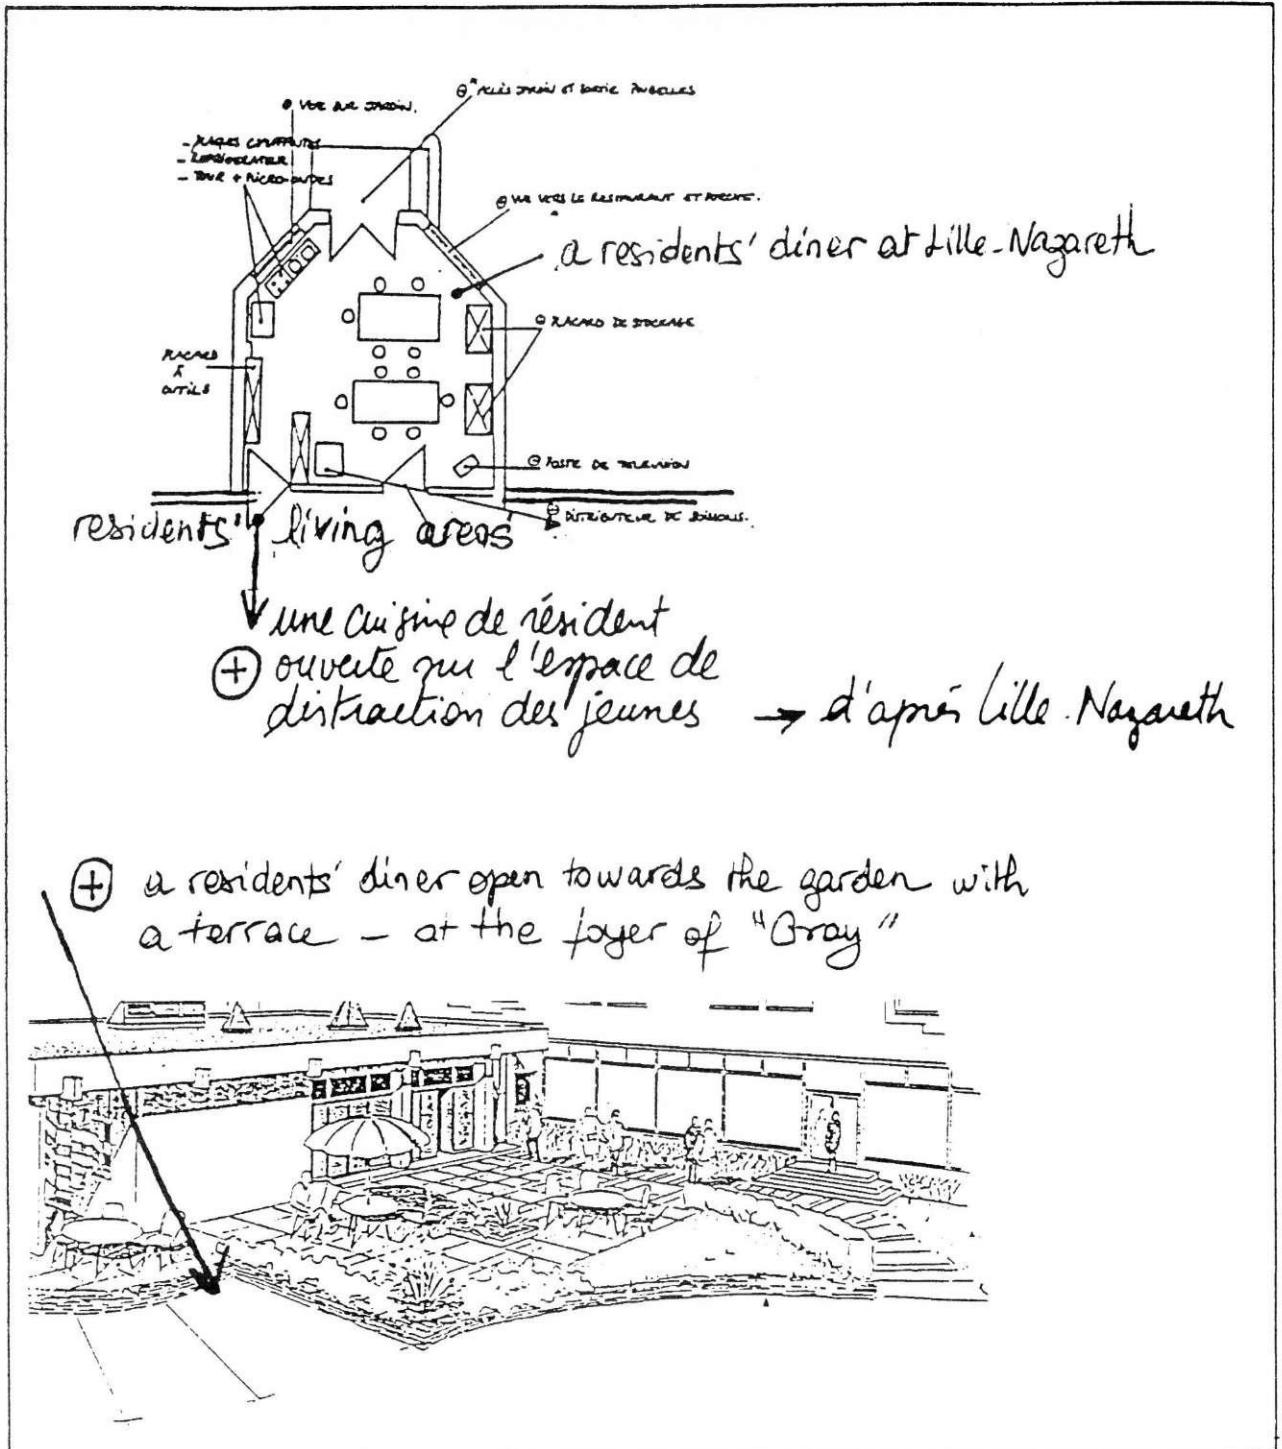 ACCÈS JARDIN ET SORTIE POUBELLES
VUE SUR JARDIN.
- PLAQUES CHAUFFANTES
- REFRIGERATEUR
- FOUR + MICRO-ONDES
VUE VERS LE RESTAURANT ET
a residents' diner at Lille-Nazareth
PLACARD DE STOCKAGE
PLACARD
À
OUTILS
POSTE DE TELEVISION
DISTRIBUTEUR DE BOISSONS.
residents' living areas
une cuisine de résident
+ ouverte sur l'espace de
distraction des jeunes → d'après Lille-Nazareth
+ a residents' diner open towards the garden with
a terrace – at the foyer of "Gray"